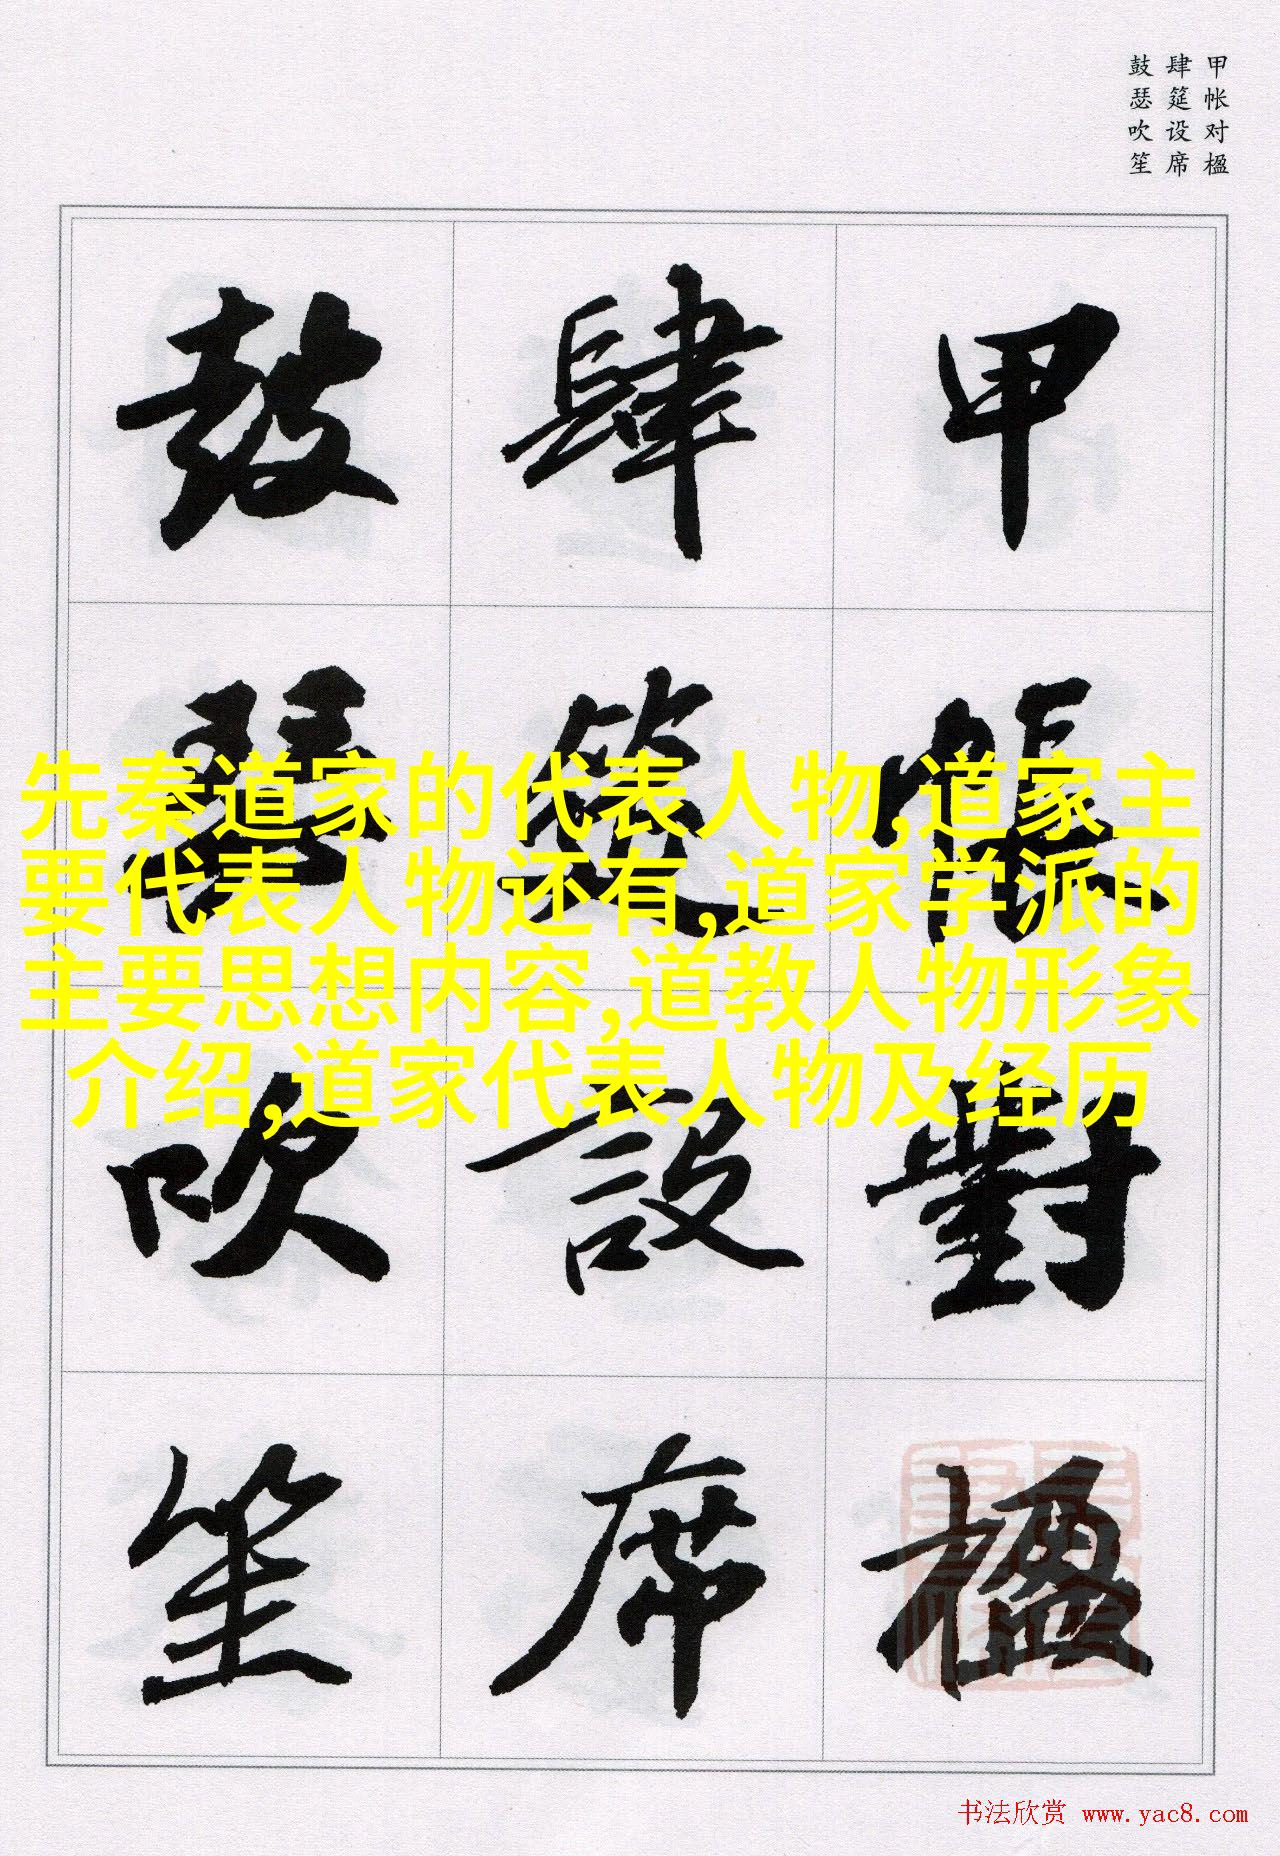 甲帐对楹
肆筵设席
鼓瑟吹笙
甲帳對楹
肆筵設席
鼓瑟吹笙
先秦道家的代表人物,道家主
要代表人物还有,道家学派的
主要思想内容,道教人物形象
介绍,道家代表人物及经历
书法欣赏 www.yac8.com